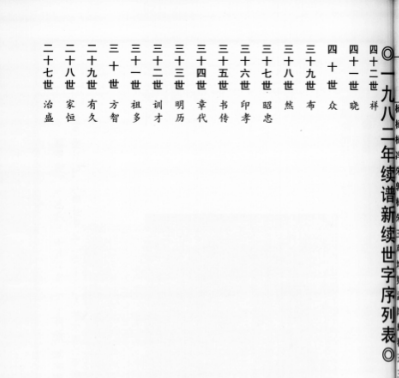 ◎一九八二年续谱新续世字序列表◎
四十二世 祥
四十一世 晓
四十世 众
三十九世 布
三十八世 然
三十七世 昭忠
三十六世 印孝
三十五世 书传
三十四世 章代
三十三世 明历
三十二世 训才
三十一世 祖多
三十世 方智
二十九世 有久
二十八世 家恒
二十七世 治盛